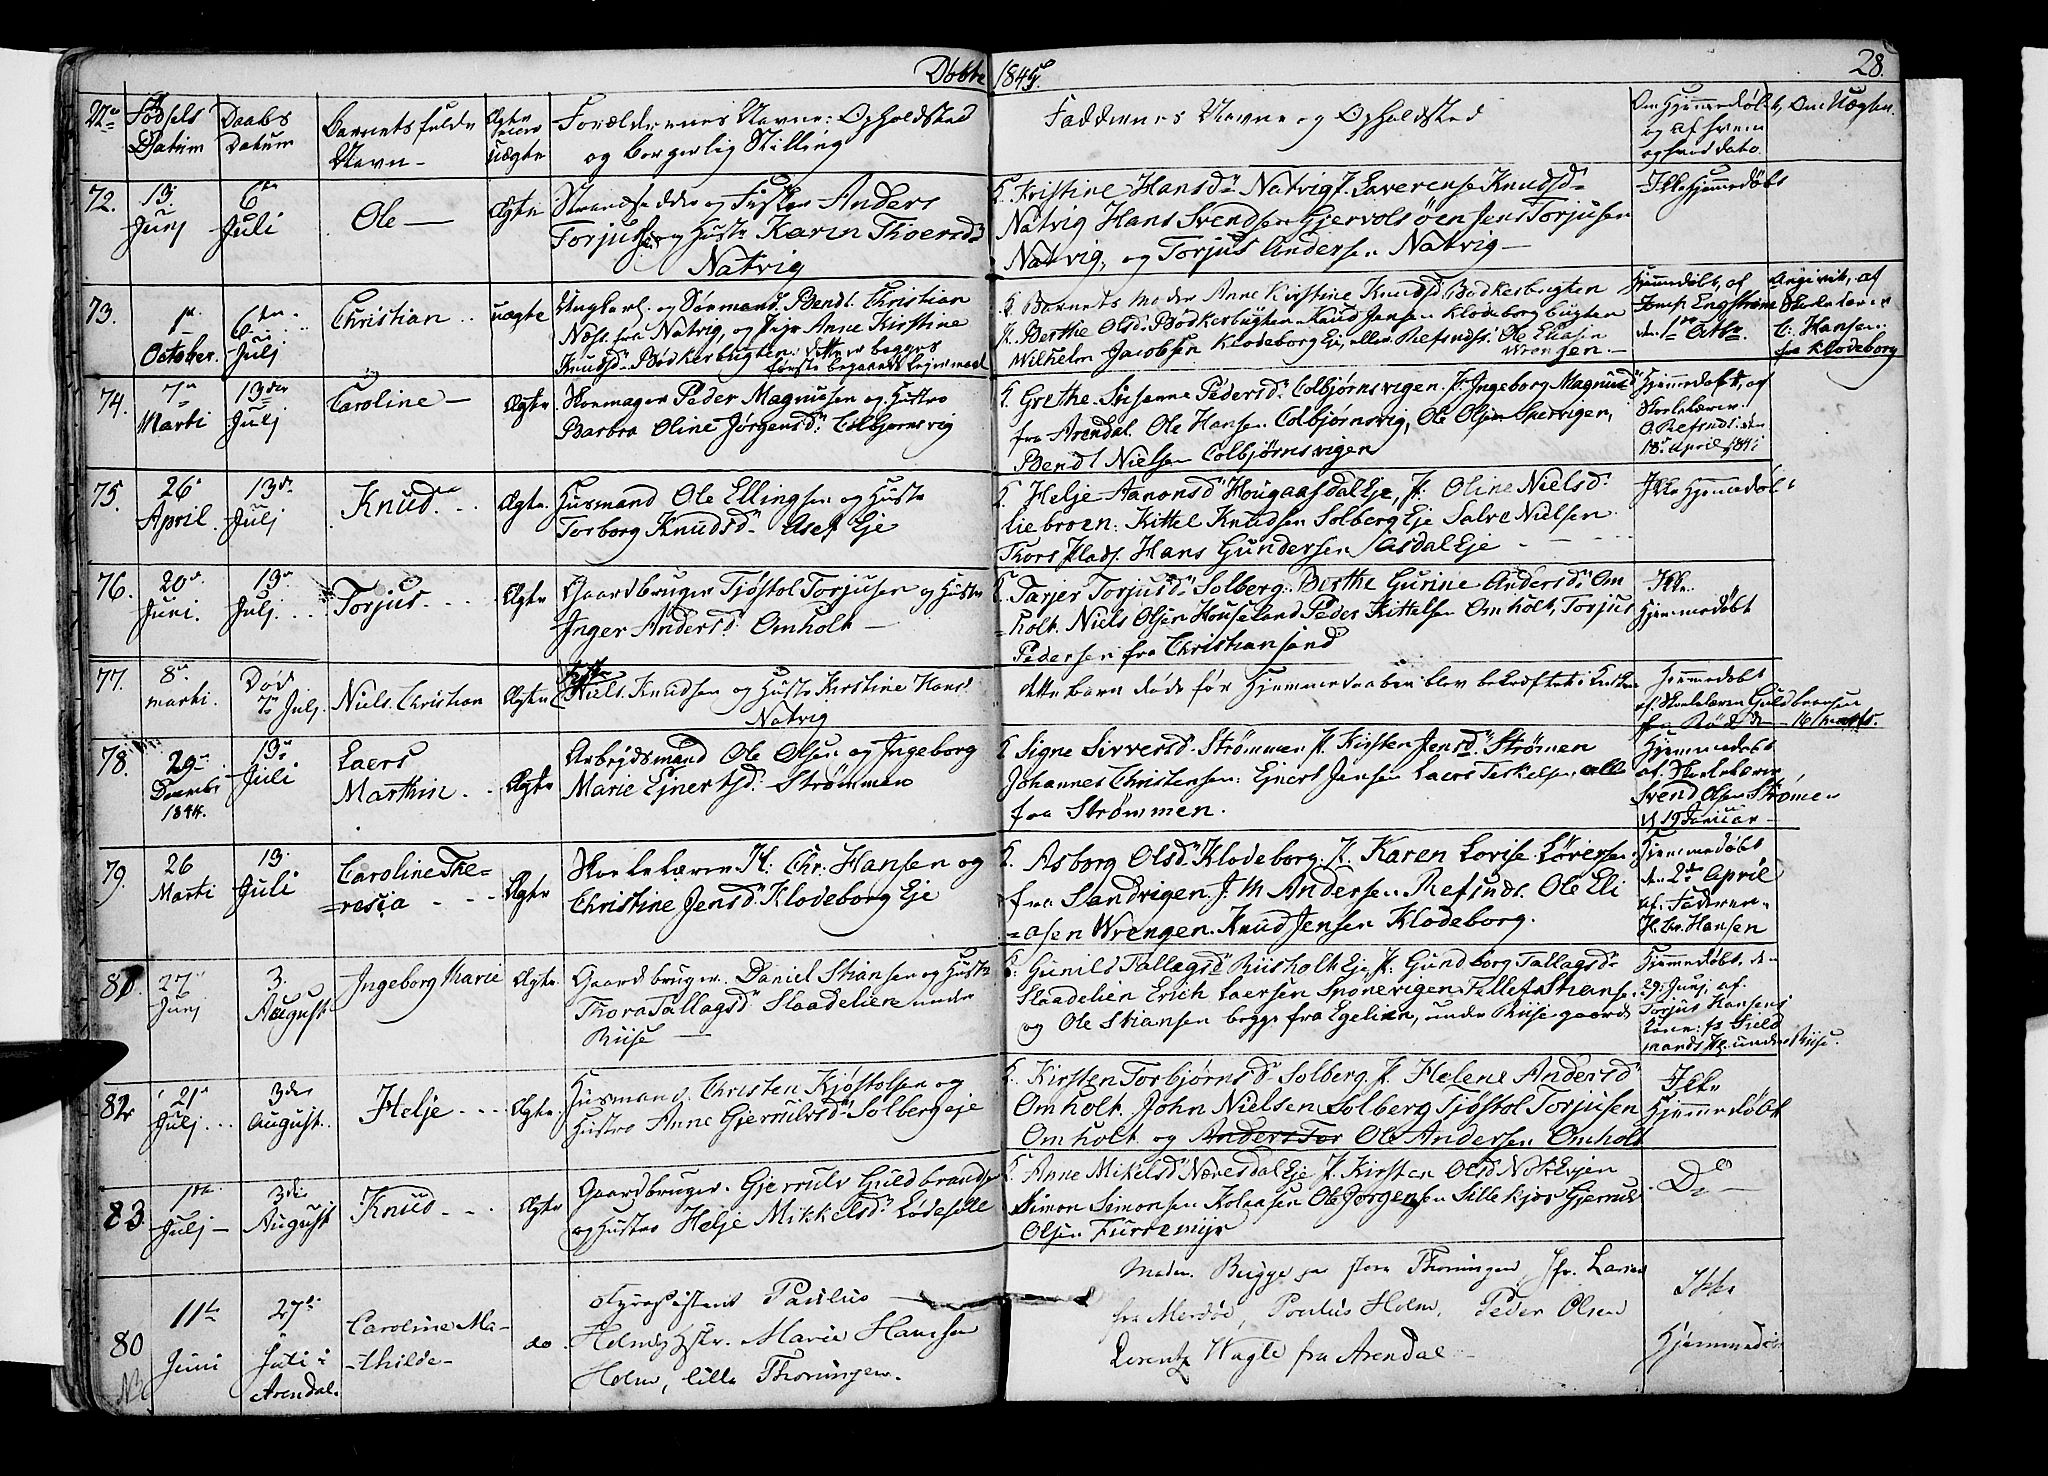 Døbte 1845. 28.
No Fødsels Datum Daabs Datum Barnets fulde Navn Ægte eller uægte Forældrenes Navne: Opholdsted og borgerlig Stilling Faddernes Navne og Opholdsted Om Hjemmedøbt, og af hvem og hvad dato. Om Uægten.
72. 13. Junj 6te Juli Ole — Ægte
Strandsidder og Fisker Anders
Torjusen og Hustr Karin Thoersd.
Natvig
Kristine Hansd. Natvig, Laverense Knudsd.
Natvig Hans Svendsen Gjervolsöen Jens Torjusen
Natvig, og Torjus Andersen Natvig —
Ikke hjemmedøbt
73. 1ste October. 6te Julj Christian uægte
Ungkarl. og Sømand. Bendt. Christian
Næss fra Natvig, og Pige Anne Kirstine
Knudsd. Bødkerbugten. dette er begges
første begaaede Leiermaal
Barnets Moder Anne Kirstine Knudsd Bødkerbugten
Berthe Olsd. Bødkerbugten Knud Jensen Klodeborg bugten
Wilhelm Jacobsen Klodeborg Eje, eller Refsnds. Ole Eliasen
Wrengen.
Hjemmedøbt, af
Jomf. Engstrøm
den 1ste Octbr.
Angivet, af
Skolelærer
C. Hansen.
fra Klodeborg
74. 7de Marti 13de Julj Caroline — Ægte
Skomager Peder Magnusen og Hustro
Barbra Oline Jørgensd. Colbjørnsvig
Grethe Susanne Pedersd. Colbjørnsvigen. Ingeborg Magnusd
fra Arendal. Ole Hansen Colbjørnsvig, Ole Olsen Spervigen,
Bendt Nielsen Colbjørnsvigen
Hjemmedøbt, af
Skolelærer
O Refsnds. den
18de April 1845
75. 26. April. 13de Julj Knud. Ægte.
Husmand Ole Ellingsen og Hustr
Torborg Knudsd. Asef Eje
Helje Aanonsd. Hougaasdal Eje, Oline Nielsd.
Liebroen. Kittel Knudsen Solberg Eje Salve Nielsen
Thors Plads. Hans Gundersen Asdal Eje
Ikke Hjemmedøbt
76. 20de Juni. 13de Julj. Torjus. Ægte
Gaardbruger Tjöstol Torjusen og Hustr
Inger Andersd. Omholt —
Tarjer Torjusd. Solberg. Berthe Gurine Andersd. Om
=holt. Niels Olsen Houseland Peder Kittelsen Omholt, Torjus
Pedersen fra Christiansand
Ikke
Hjemmedøbt
77. 8de Marti. Død 7de Julj. Niels. Christian Ægte
Niels. Knudsen og Hustr Kirstine Hansd.
Natvig
dette barn døde før hjemmedaaben blev bekræftet i Kirken
Hjemmedøbt
af. Skolelærer Guldbransen
fra Röd den 16 Marts.
78. 29de Decembr 1844. 13de Juli Laers Marthin. Ægte
Arbejdsmand Ole Olsen og Ingeborg
Marie Ejnertsd. Strömmen
Signe Sivversd. Strømmen Kirsten Jensd. Strömen
Johannes Christensen. Ejnert Jensen Laers Terkelsen, alle
fra Strømmen.
Hjemmedøbt
af. Skolelærer
Svend Olsen Strömen
d 19 Januar —
79. 26 Marti 13. Juli Caroline The=
=resia Ægte
Skolelærer H: Chr. Hansen og
Christine Jensd. Klodeborg Eje
Asborg Olsd. Klodeborg. Karen Lovise. Lörensen
fra Sandvigen. J. M Andersen Refsnds. Ole Eli
=asen Wrengen. Knud Jensen Klodeborg.
Hjemmedøbt
den 2de April
af. Faderen
H. Chr. Hansen
81. 27de Junj 3. August Ingeborg Marie Ægte.
Gaardbruger. Daniel Stiansen og Hustr
Thora Tallagsd. Slaadelien under
Riise —
Gunild Tallagsd. Riisholt Eje, Gundborg Tallagsd.
Slaadelien Erich Laersen Sponevigen Tellef Stians.
og Ole Stiansen begge fra Egelien, under Riise gaard
Hjemmedøbt. den
29. Junj. af.
Torjus Hansens
Kone: fs Sield
mands Pl. under Riise.
82 21de Julj 3de August. Helje Ægte.
Husmand. Christen Kjöstolsen og
Hustro Anne Gjerrulvsd. Solberg eje
Kirsten Torbjörnsd. Solberg. Helene Andersd.
Omholt. John Nielsen Solberg Tjöstol Torjusen
Omholt og Anders Tor Ole Andersen Omholt
Ikke
Hjemmedøbt
83 1ste Julj — 3die August Knud Ægte
Gaardbruger. Gjerrulv Guldbrands.
og Hustro Helje Mikkelsd. Lödesölle
Anne Mikelsd. Næresdal Eje Kirsten Olsd. Natevjen
Simon Simonsen Kolaasen Ole Jörgensen Lillekjör Gjerrulv
Olsen Furremyr
Do —
80 11te Juni 27de Juli i Arendal. Caroline Ma-
-thilde- do.
Fyrassistent Paulus
Holm, Hstr. Marie Hansen
Holm, lille Thorungen.
Madm. Bugge paa store Thorungen, Jfr. Larsen
fra Merdøe, Poulus Holm, Peder Olsen
Lorentz Wagle fra Arendal
Ikke
Hjemmedøbt